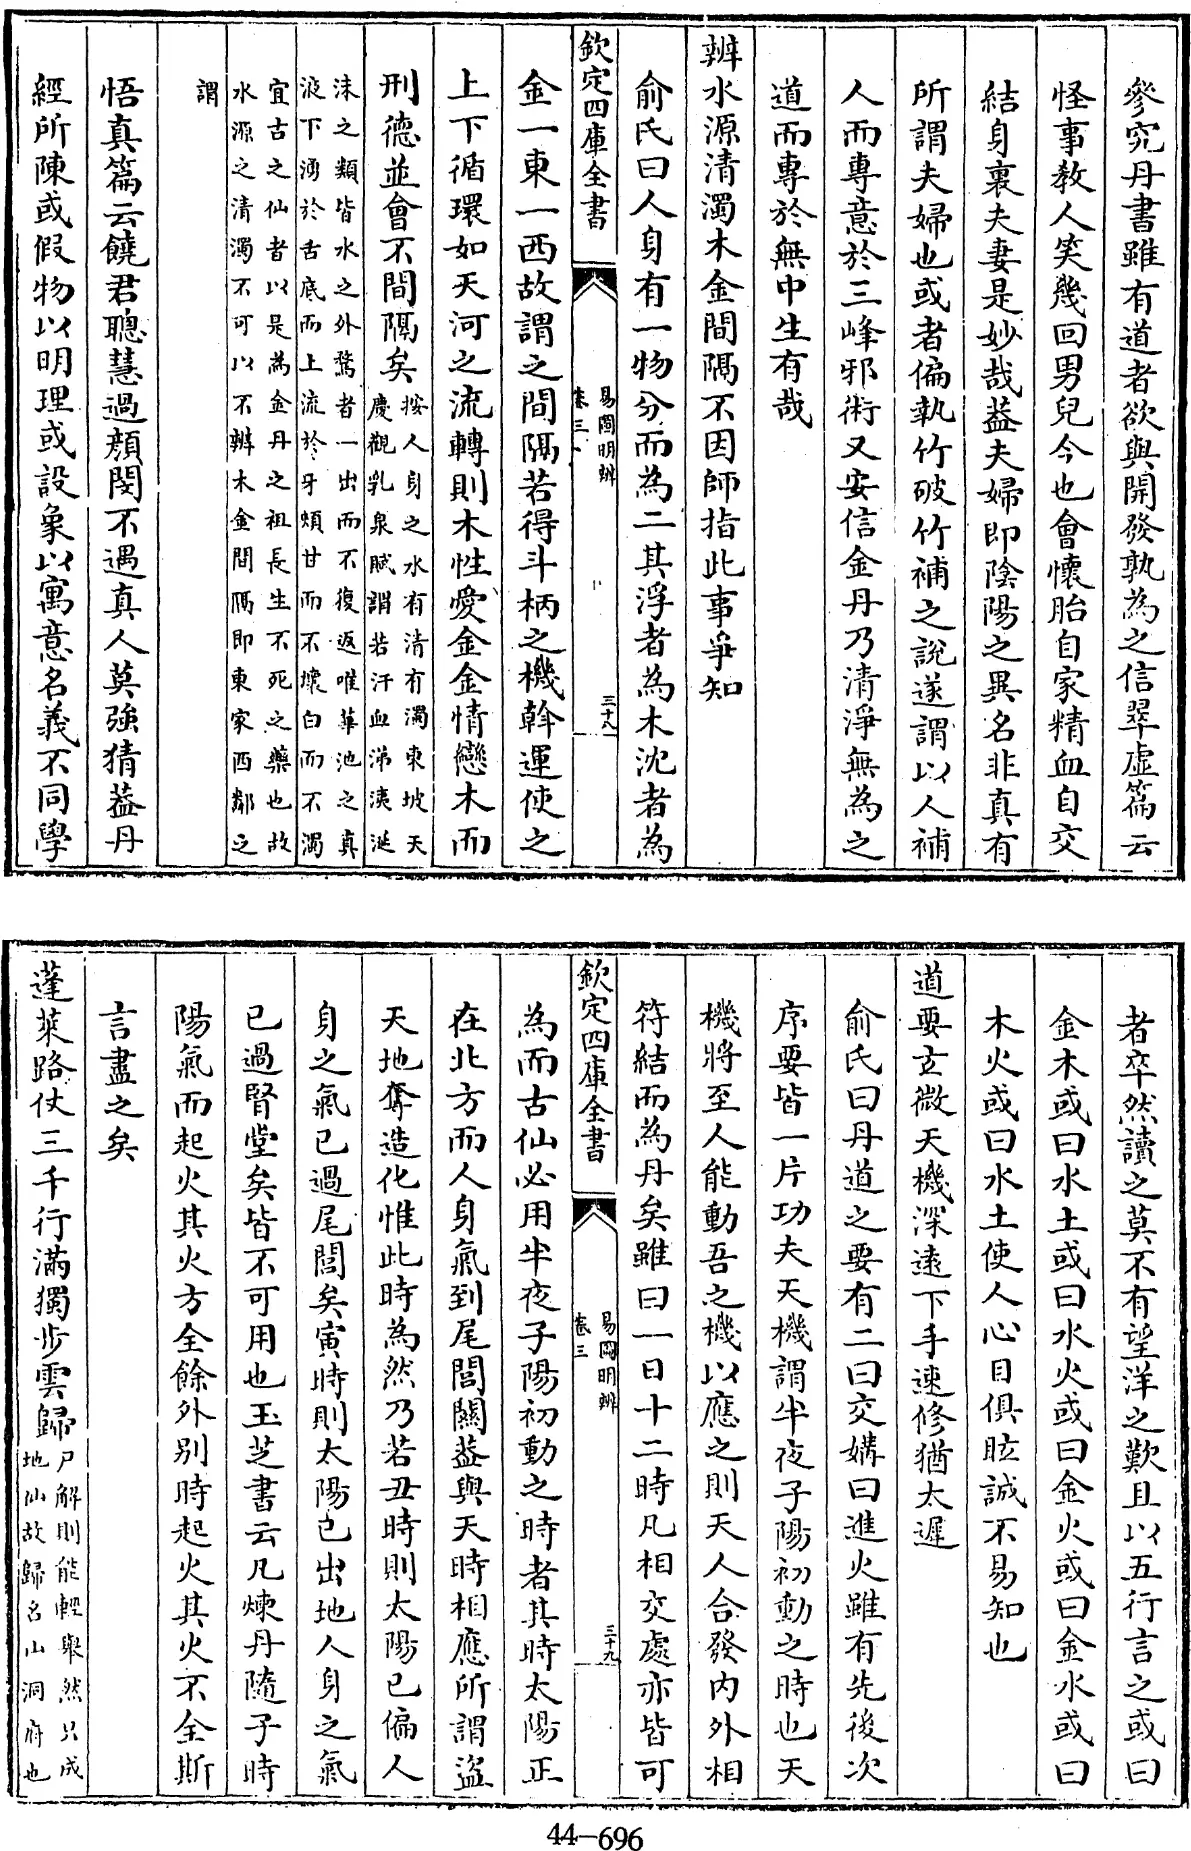 參究丹書雖有道者欲與開發孰為之信翠虛篇云
怪事教人笑幾回男兒今也會懷胎自家精血自交
結身裏夫妻是妙哉葢夫婦即陰陽之異名非真有
所謂夫婦也或者偏執竹破竹補之說遂謂以人補
人而專意於三峰邪術又安信金丹乃清淨無為之
道而專於無中生有哉
辨水源清濁木金間隔不因師指此事爭知
俞氏曰人身有一物分而為二其浮者為木沈者為
欽定四庫全書
易圖明辨
卷三
三十八
金一東一西故謂之間隔若得斗柄之機斡運使之
上下循環如天河之流轉則木性愛金金情戀木而
刑德並會不間隔矣
按人身之水有清有濁東坡天
慶觀乳泉賦謂若汗血涕洟涎
沫之類皆水之外騖者一出而不復返唯華池之真
液下湧於舌底而上流於牙頰甘而不壞白而不濁
宜古之仙者以是為金丹之祖長生不死之藥也故
水源之清濁不可以不辨木金間隔即東家西鄰之
謂
悟真篇云饒君聰慧過顏閔不遇真人莫強猜葢丹
經所陳或假物以明理或設象以寓意名義不同學
者卒然讀之莫不有望洋之歎且以五行言之或曰
金木或曰水土或曰水火或曰金火或曰金水或曰
木火或曰水土使人心目俱眩誠不易知也
道要玄微天機深遠下手速修猶太遲
俞氏曰丹道之要有二曰交媾曰進火雖有先後次
序要皆一片功夫天機謂半夜子陽初動之時也天
機將至人能動吾之機以應之則天人合發內外相
符結而為丹矣雖曰一日十二時凡相交處亦皆可
欽定四庫全書
易圖明辨
卷三
三十九
為而古仙必用半夜子陽初動之時者其時太陽正
在北方而人身氣到尾閭關葢與天時相應所謂盜
天地奪造化惟此時為然乃若丑時則太陽已偏人
身之氣已過尾閭矣寅時則太陽已出地人身之氣
已過腎堂矣皆不可用也玉芝書云凡煉丹隨子時
陽氣而起火其火方全餘外別時起火其火不全斯
言盡之矣
蓬萊路仗三千行滿獨步雲歸
尸解則能輕舉然只成
地仙故歸名山洞府也
44-696